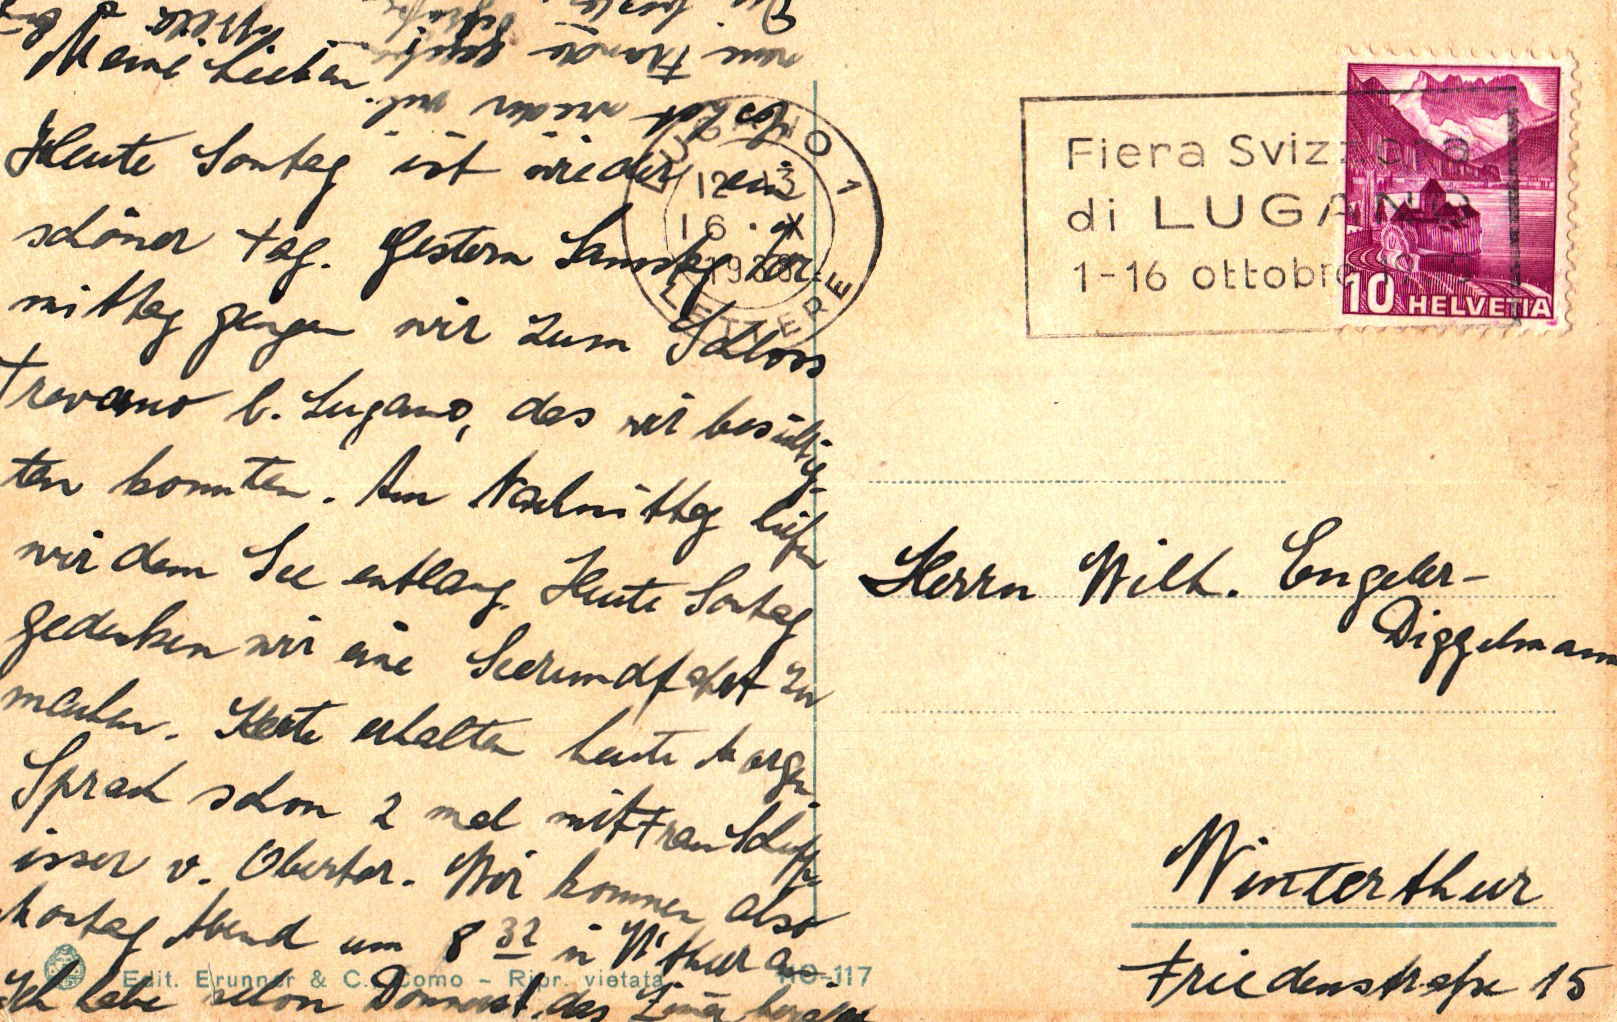 Meine Lieben
Heute Sontag ist wieder ein
schöner Tag. Gestern Samstag Vor-
mittag gingen wir zum Schloss
Trevano b. Lugano, das wir besichtig-
ten konnten. Am Nachmittag liefen
wir dem See entlang. Heute Sontag
gedenken wir eine Seerundfahrt zu
machen. Karte erhalten heute Morgen
Sprach schon 2 mal mit Frau
v. Obertor. Wir kommen also
Montag Abend um 8 32 in W'thur an.
Ich habe schon Donnerst. das
Es hat wieder
LUGANO 1
12-13
16. X
1938
LETTERE
Fiera Svizzera
di LUGANO
1-16 ottobre
10 HELVETIA
Herrn Wilh. Engeler-
Diggelmann
Winterthur
Friedenstraße 15
Edit. Brunner & C. Como - Ripr. vietata
117